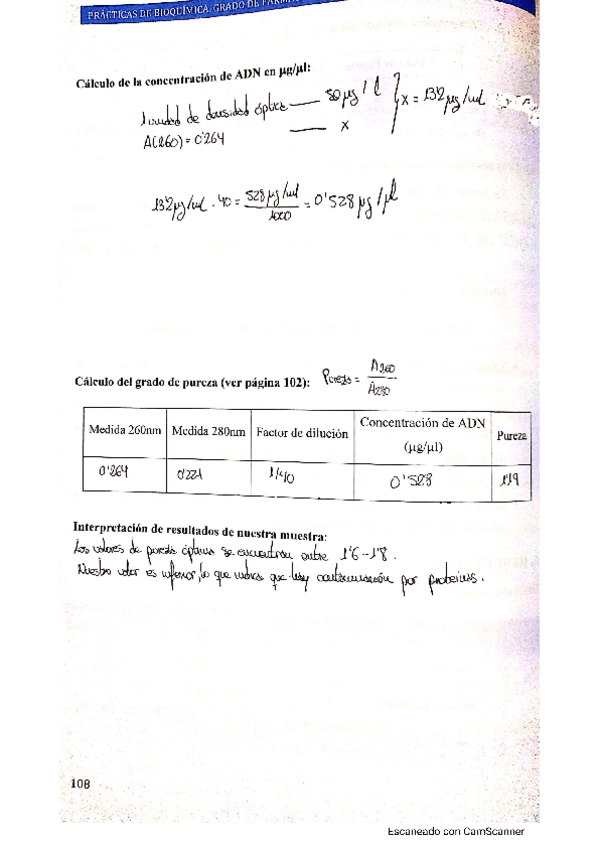 PRÁCTICAS DE BIOQUÍMICA. GRADO DE FARMA
Cálculo de la concentración de ADN en µg/µl:
1 unidad de densidad óptica —— 50 µg / l } x = 13'2 µg/ml
A(260) = 0'264 —— x
13'2 µg/ml · 40 = 528 µg/ml / 1000 = 0'528 µg/µl
Cálculo del grado de pureza (ver página 102): Pureza = A260 / A280
Medida 260nm Medida 280nm Factor de dilución Concentración de ADN (µg/µl) Pureza
0'264 0'221 1/40 0'528 1'19
Interpretación de resultados de nuestra muestra:
Los valores de pureza óptima se encuentran entre 1'6-1'8.
Nuestro valor es inferior, lo que indica que hay contaminación por proteínas.
108
Escaneado con CamScanner